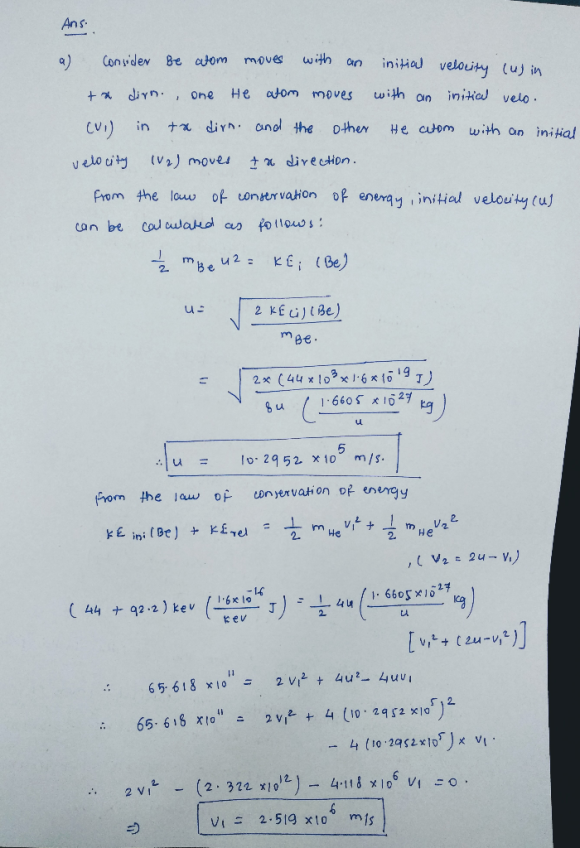 Ans.
a) Consider Be atom moves with an initial velocity (u) in
+x dirn. , one He atom moves with an initial velo.
(V₁) in +x dirn. and the other He atom with an initial
velocity (V₂) moves ±x direction.
From the law of conservation of energy, initial velocity (u)
can be calculated as follows:
1/2 m_Be u² = KE_i (Be)
u = √(2 KE(i)(Be) / m_Be.)
= √(2×(44×10³×1.6×10⁻¹⁹ J) / 8u (1.6605×10⁻²⁷ kg / u))
∴ u = 10.2952 ×10⁵ m/s.
From the law of conservation of energy
KE ini(Be) + KE_rel = 1/2 m_He V₁² + 1/2 m_He V₂²
, ( V₂ = 2u - V₁)
( 44 + 92.2) kev (1.6×10⁻¹⁶ J / kev) = 1/2 4u (1.6605×10⁻²⁷ kg / u)
[V₁² + (2u-V₁²)]
∴ 65.618 ×10¹¹ = 2V₁² + 4u² - 4uV₁
∴ 65.618 ×10¹¹ = 2V₁² + 4 (10.2952 ×10⁵)²
- 4 (10.2952×10⁵) × V₁.
∴ 2V₁² - (2.322 ×10¹²) - 4.118 ×10⁶ V₁ = 0.
⇒ V₁ = 2.519 ×10⁶ m/s